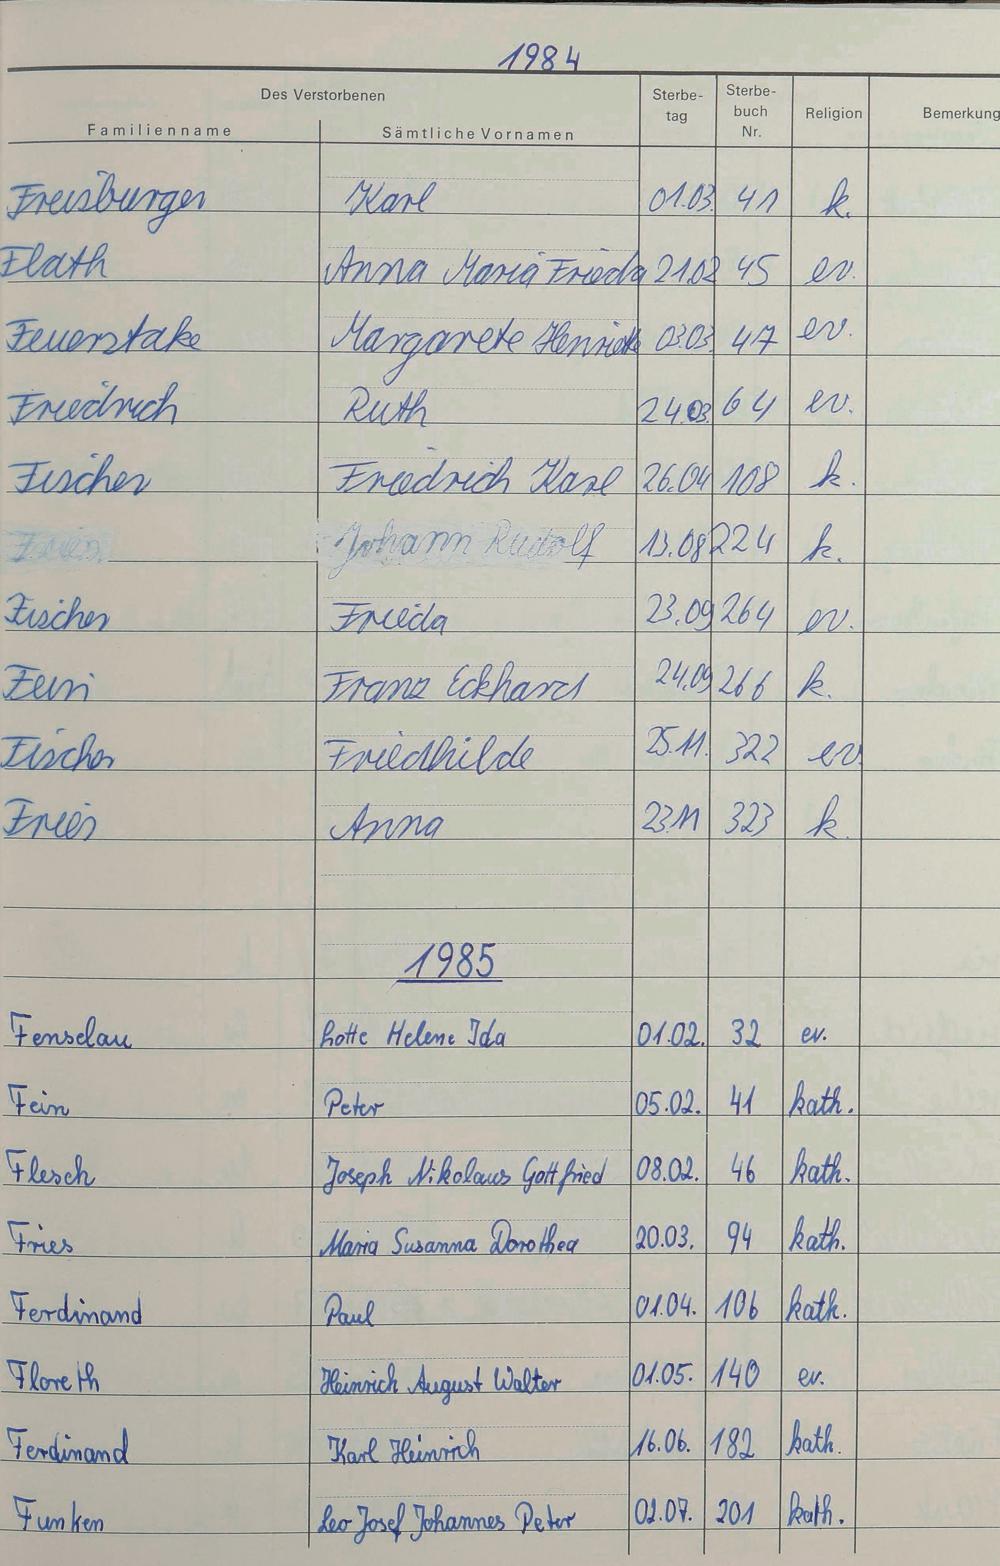 1984
Des Verstorbenen
Familienname Sämtliche Vornamen Sterbe-tag Sterbe-buch Nr. Religion Bemerkung
Freisburger Karl 01.03. 41 k.
Flath Anna Maria Frieda 21.02 45 ev.
Feuerstake Margarete Henriette 03.03. 47 ev.
Friedrich Ruth 24.03. 64 ev.
Fischer Friedrich Karl 26.04 108 k.
Johann Rudolf 13.08 224 k.
Fischer Frieda 23.09 264 ev.
Franz Eckhard 24.09 266 k.
Fischer Friedhilde 25.11. 322 ev.
Fries Anna 23.11 323 k.
1985
Fenselau Lotte Helene Ida 01.02. 32 ev.
Fein Peter 05.02. 41 kath.
Flesch Joseph Nikolaus Gottfried 08.02. 46 kath.
Fries Maria Susanna Dorothea 20.03. 94 kath.
Ferdinand Paul 01.04. 106 kath.
Floreth Heinrich August Walter 01.05. 140 ev.
Ferdinand Karl Heinrich 16.06. 182 kath.
Funken Leo Josef Johannes Peter 02.07. 201 kath.